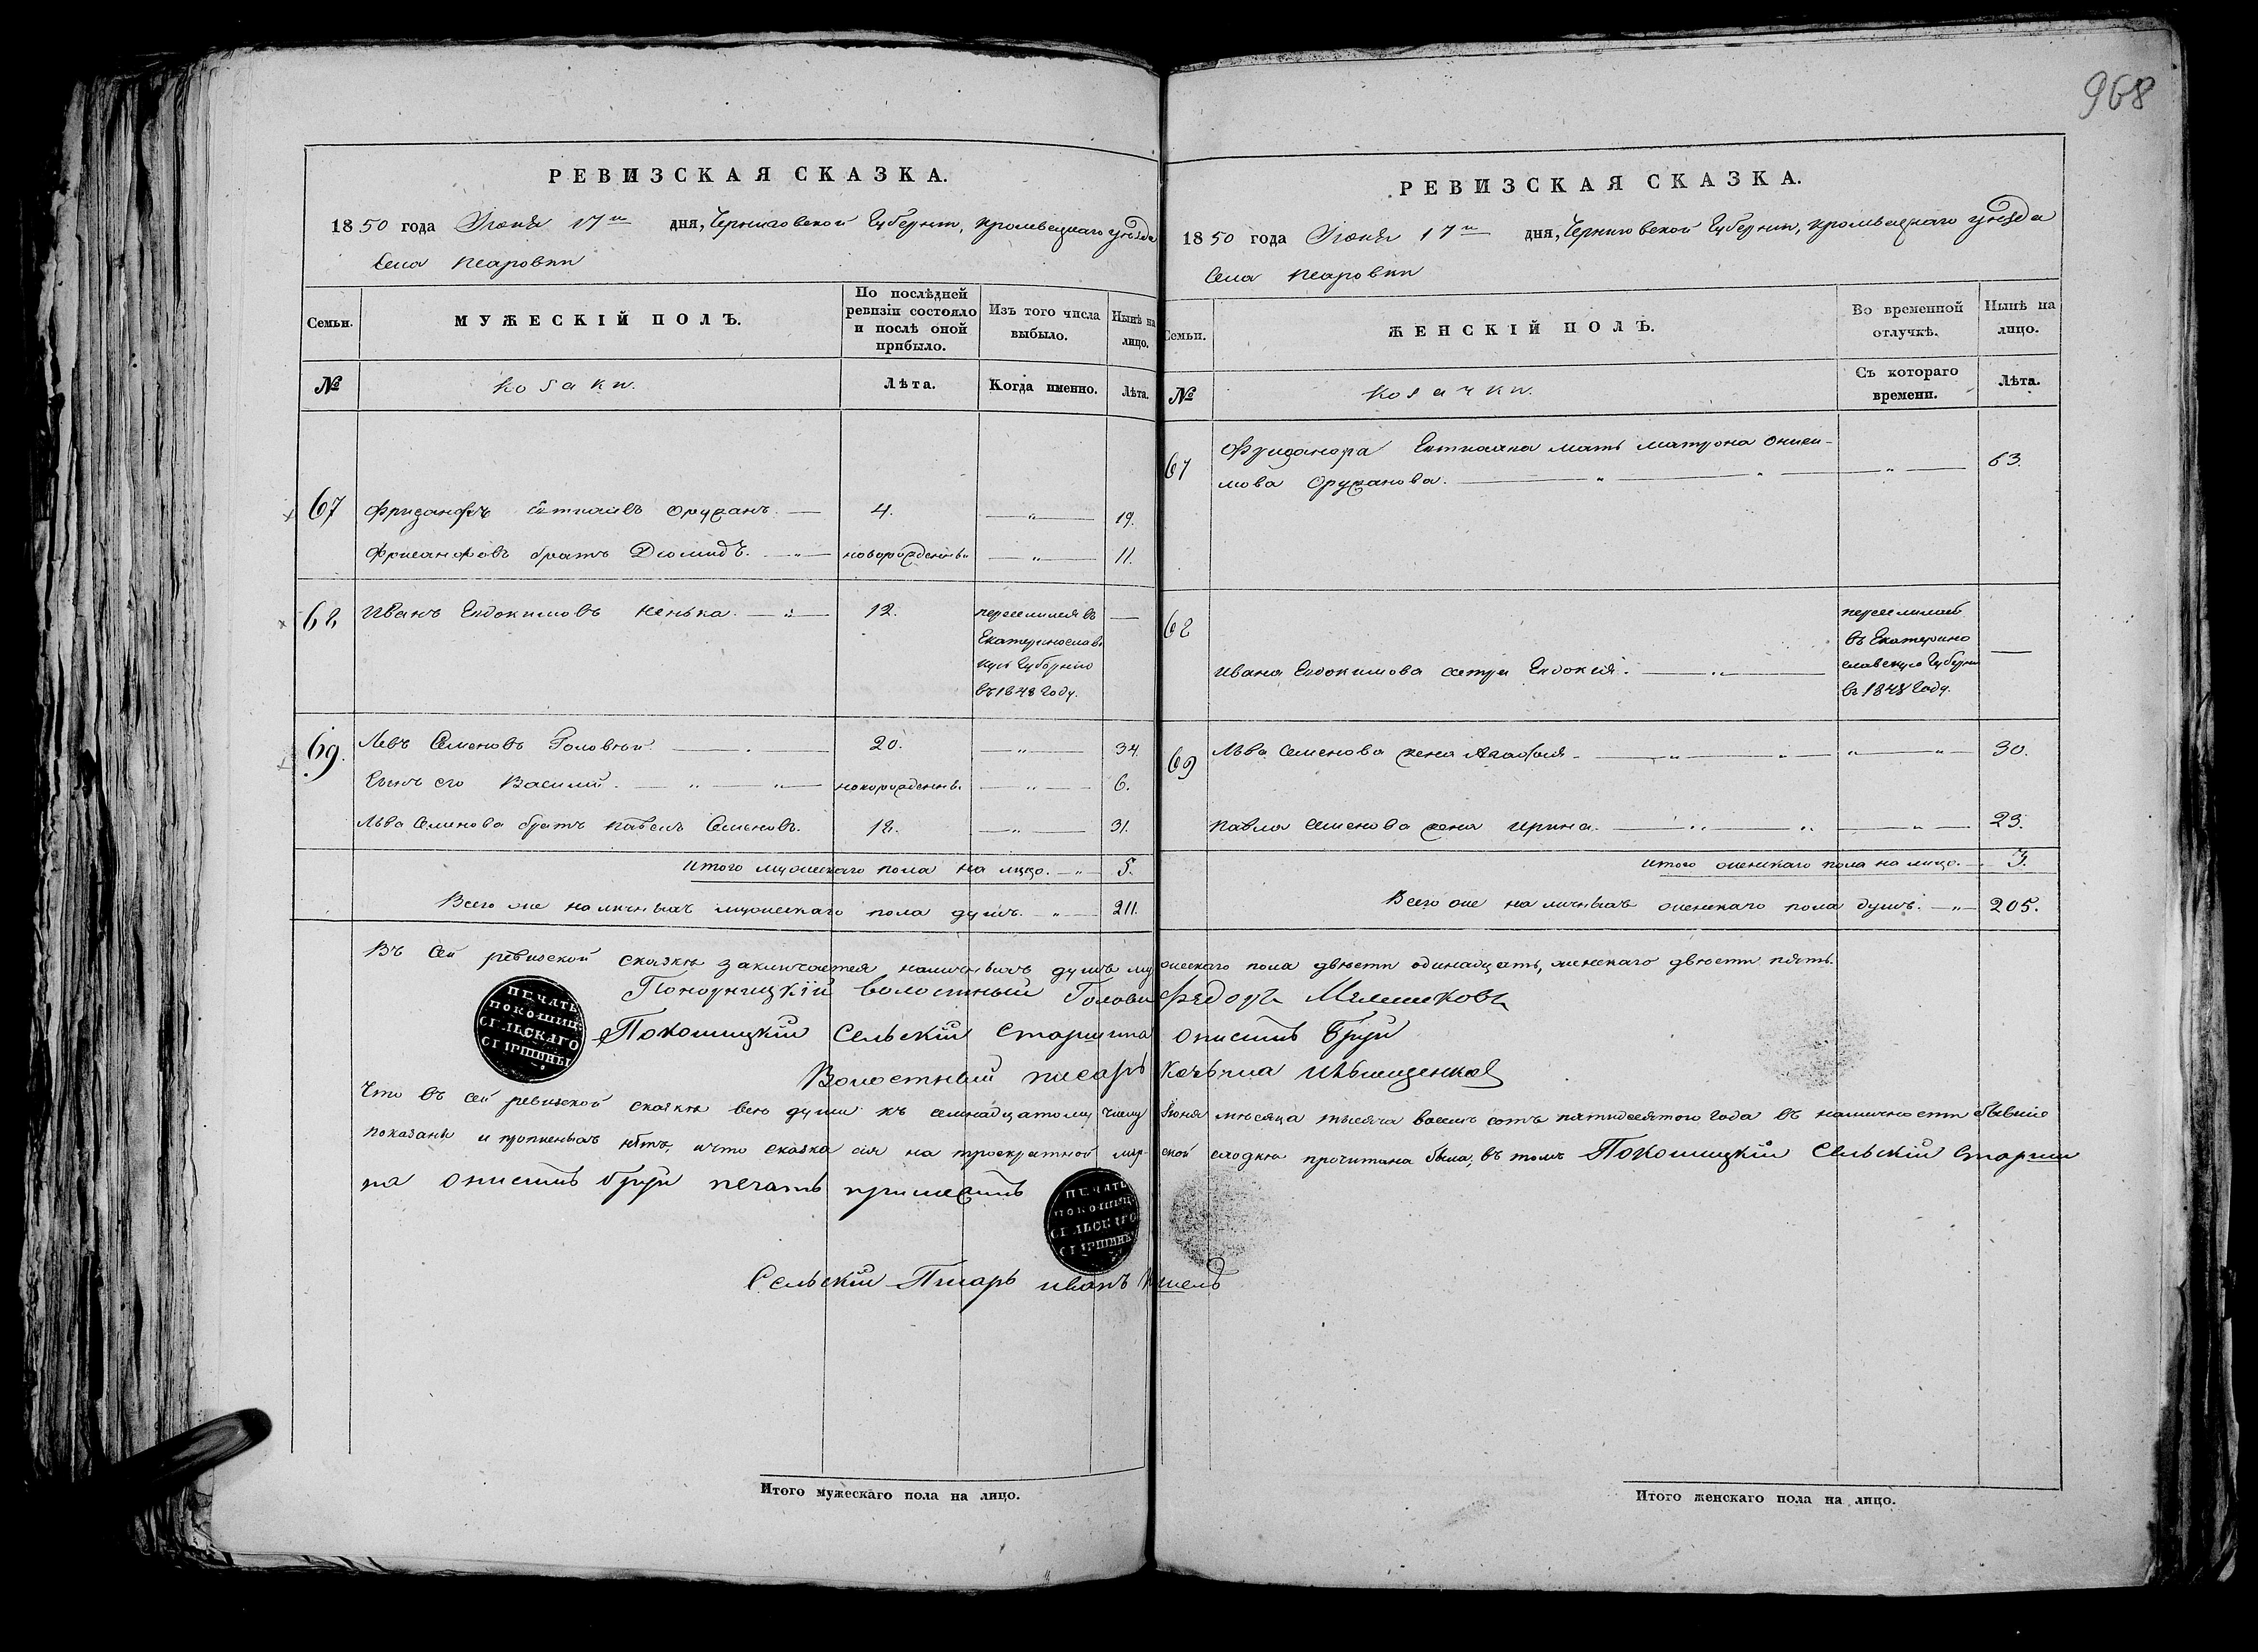 968
РЕВИЗСКАЯ СКАЗКА.
1850 года Июня 17 дня, Черниговской Губернии, Кролевецкаго уѣзда
Села
Семьи.
МУЖЕСКІЙ ПОЛЪ.
По послѣдней
ревизіи состояло
и послѣ оной
прибыло.
Изъ того числа
выбыло.
Нынѣ на
лицо.
№
козаки.
Лѣта.
Когда именно.
Лѣта.
67 4. 19.
братъ Диомидъ. новорожденный 11.
68 Иванъ Евдокимовъ 12. переселился въ
Екатеринослав
кую Губернію
въ 1848 году.
69. Левъ Семеновъ Головній. 20. 34.
Сынъ его Василій. новорожденный. 6.
Льва Семенова братъ Павелъ Семеновъ. 12. 31.
Итого мужескаго пола на лицо. 5.
Всего же наличныхъ мужескаго пола душъ. 211.
РЕВИЗСКАЯ СКАЗКА.
1850 года Июня 17 дня, Черниговской Губернии, Кролевецкаго уѣзда
Села
Семьи.
ЖЕНСКІЙ ПОЛЪ.
Во временной
отлучкѣ.
Нынѣ на
лицо.
№
козачки.
Съ котораго
времени.
Лѣта.
67 мать Матрона Ониси-
мова 63.
68 переселилась
въ Екатерино
славскую Губерни
въ 1848 году.
Ивана Евдокимова сестра Евдокія.
69 Льва Семенова жена Агафія 30.
Павла Семенова жена Ирина. 23.
Итого женскаго пола на лицо. 3.
Всего же наличныхъ женскаго пола душъ. 205.
Въ сей ревизской сказкѣ заключается наличныхъ душъ мужескаго пола двѣсти одинадцать, женскаго двѣсти пять.
Понорницкій волостный Голова Федоръ
Покошицкій Сельскій Старшина Онисимъ
Волостный писарь
Что въ сей ревизской сказкѣ всѣ души къ семнадцатому числу Июня мѣсяца тысяча восемь сотъ пятидесятого года въ наличности бывшіе
показаны и прописныхъ нѣтъ, и что сказка сія на троекратной мирской сходкѣ прочитана была, въ томъ Покошицкій Сельскій Старши
на Онисимъ печать
Сельскій Писарь Иванъ
ПЕЧАТЬ
ПОКОШИЦ
СЕЛЬСКАГО
СТАРШИНЫ
ПЕЧАТЬ
ПОКОШИЦ
СЕЛЬСКАГО
СТАРШИНЫ
Итого мужескаго пола на лицо.
Итого женскаго пола на лицо.